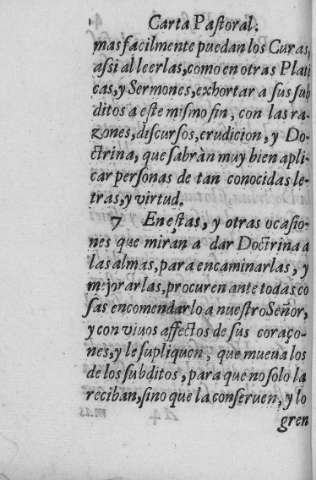 Carta Pastoral.
mas facilmente puedan los Curas,
assi al leerlas, como en otras Plati
cas, y Sermones, exhortar a sus sub
ditos a este mismo fin, con las ra-
zones, discursos, erudicion, y Do-
ctrina, que sabràn muy bien apli-
car personas de tan conocidas le-
tras, y virtud.
7 En estas, y otras ocasio-
nes que miran a dar Doctrina a
las almas, para encaminarlas, y
mejorarlas, procuren ante todas co
sas encomendarlo a nuestro Señor,
y con viuos affectos de sus coraço-
nes, y le supliquen, que mueva los
de los subditos, para que no solo la
reciban, sino que la conserven, y lo
gren